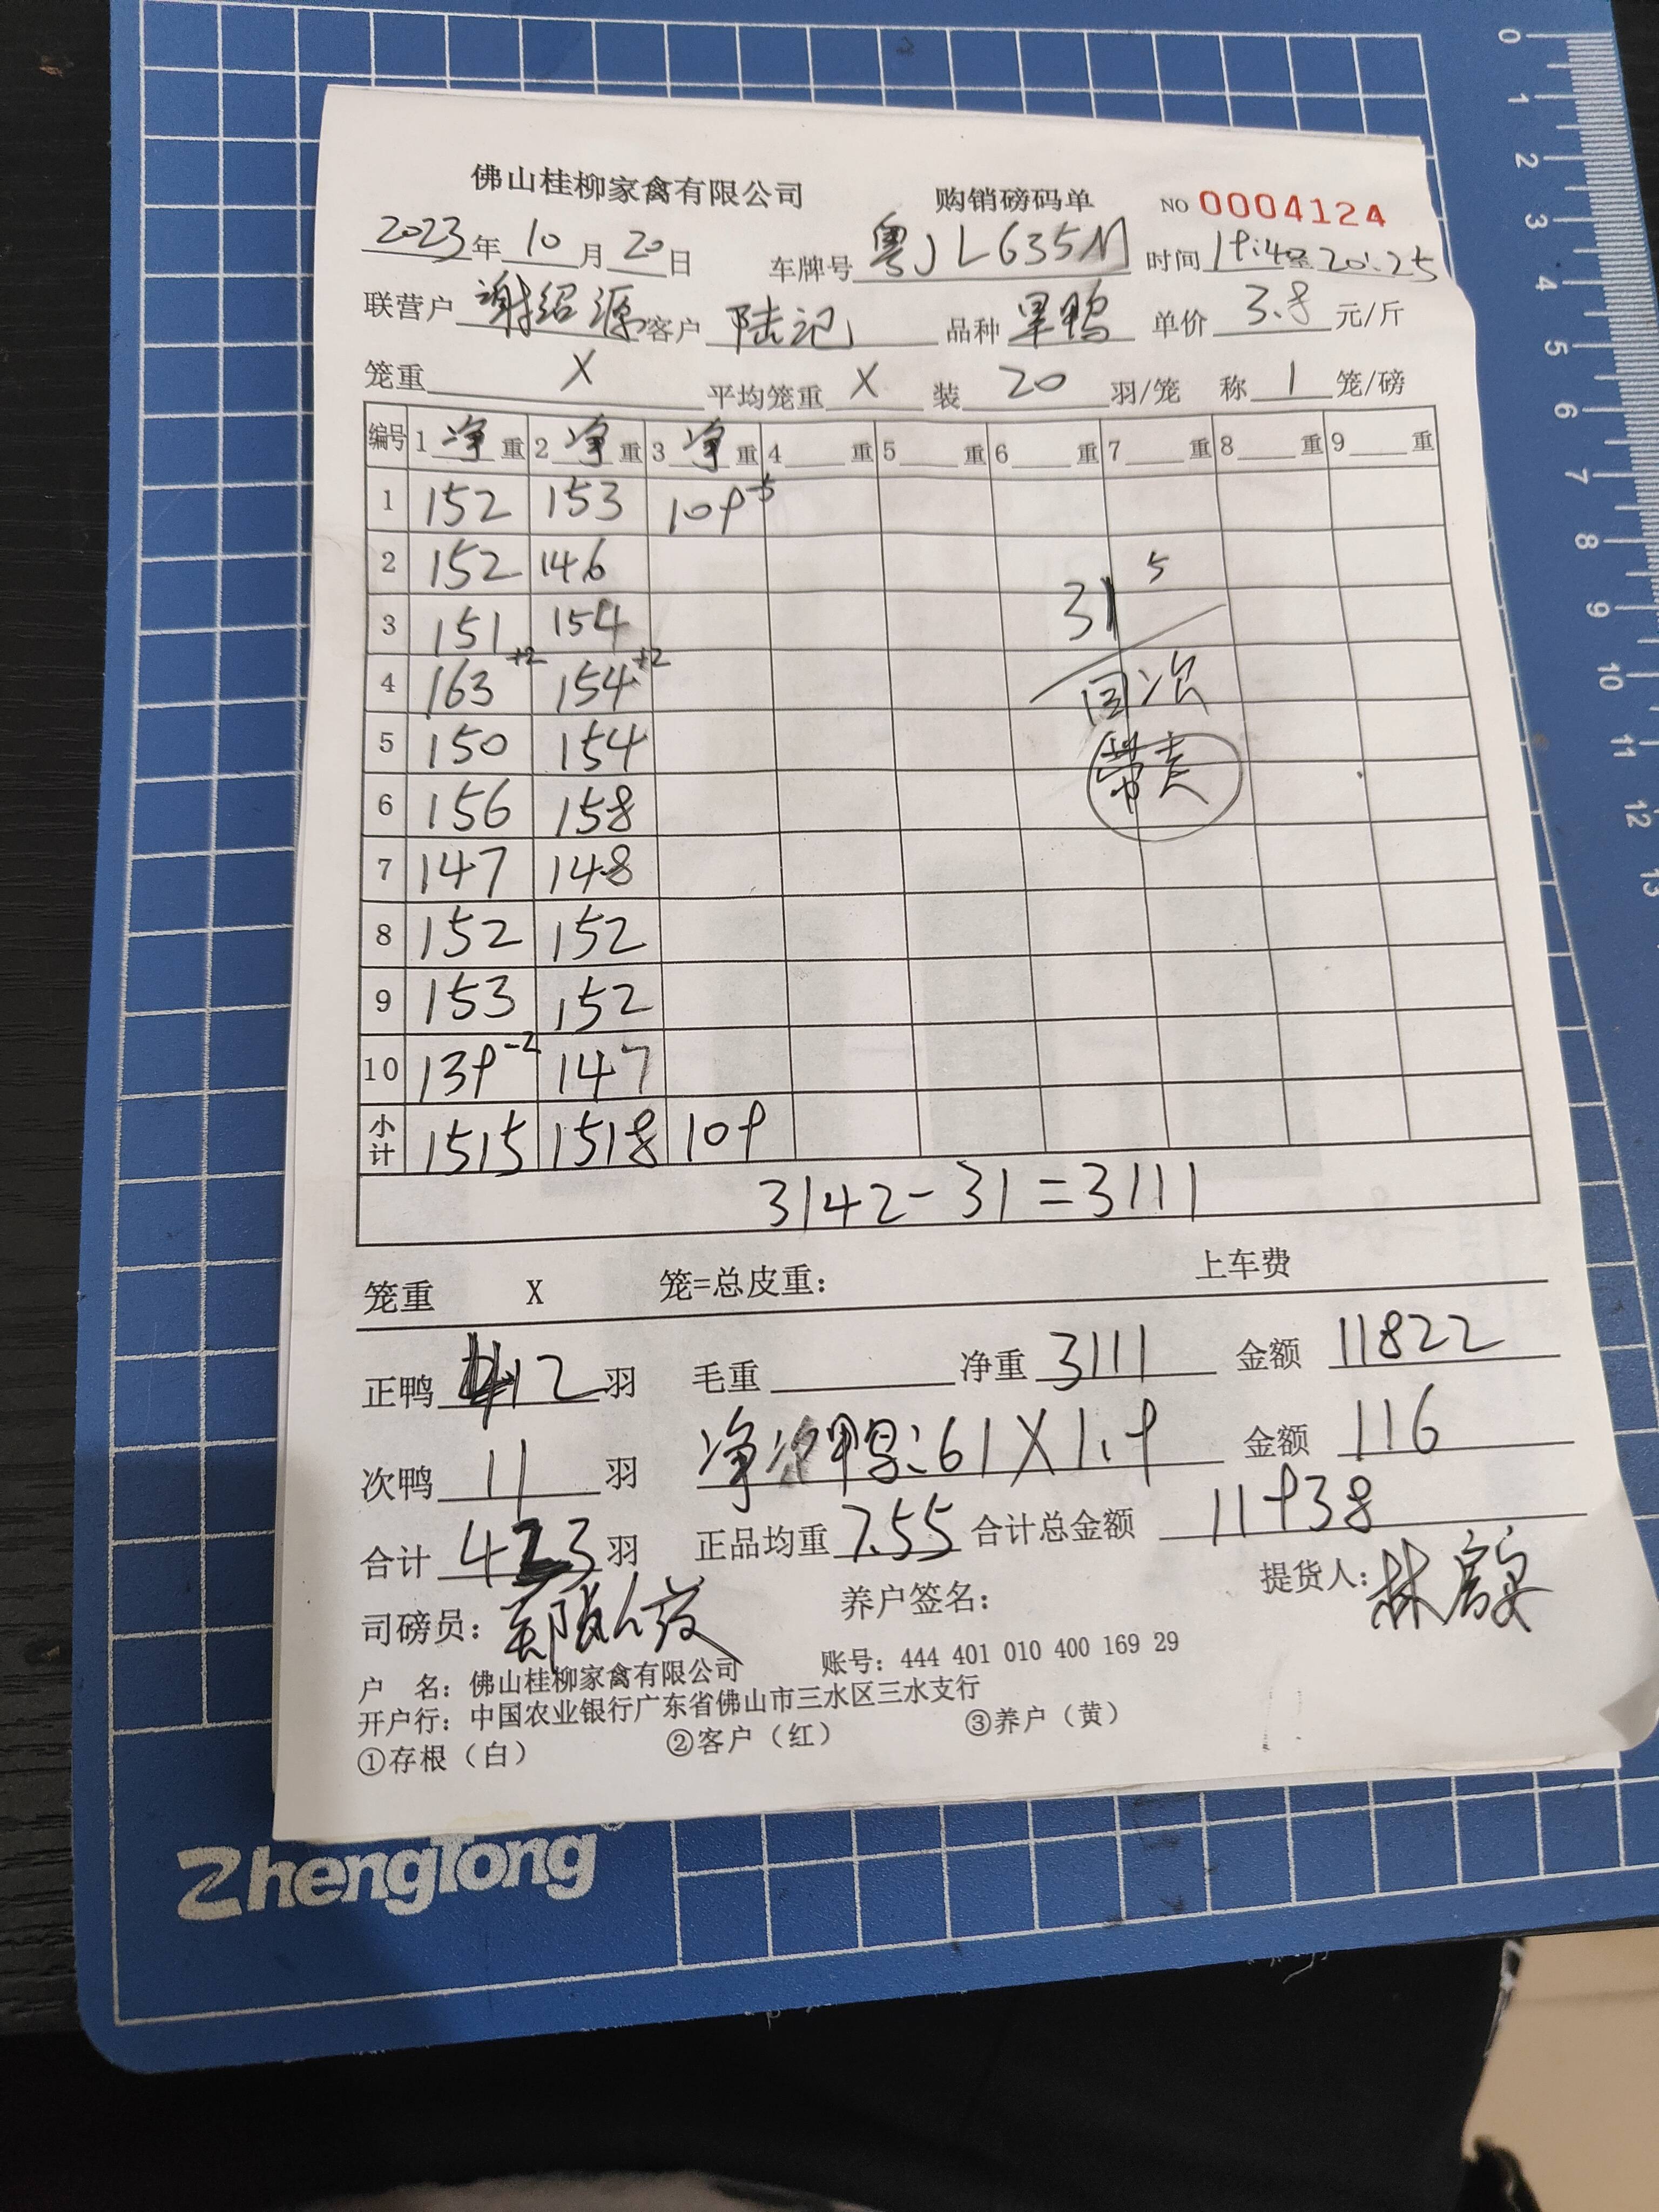 佛山桂柳家禽有限公司 购销磅码单 NO 0004124
2023年10月20日 车牌号 粤JL635M 时间 19:40至20:25
联营户 谢绍源 客户 陆记 品种 旱鸭 单价 3.8 元/斤
笼重 X 平均笼重 X 装 20 羽/笼 称 1 笼/磅
编号 1净重 2净重 3净重 4 重 5 重 6 重 7 重 8 重 9 重
1 152 153 109-5
2 152 146 5
3 151 154 31
4 163+2 154+2 次
5 150 154
6 156 158
7 147 148
8 152 152
9 153 152
10 139-2 147
小计 1515 1518 109
3142-31=3111
笼重 X 笼=总皮重： 上车费
正鸭 412 羽 毛重 净重 3111 金额 11822
次鸭 11 羽 净次 :61X1.9 金额 116
合计 423 羽 正品均重 7.55 合计总金额 11938
司磅员： 养户签名： 提货人：林
户 名：佛山桂柳家禽有限公司 账号：444 401 010 400 169 29
开户行：中国农业银行广东省佛山市三水区三水支行
①存根（白） ②客户（红） ③养户（黄）
ZhengTong
0
1
2
3
4
5
6
7
8
9
10
11
12
13